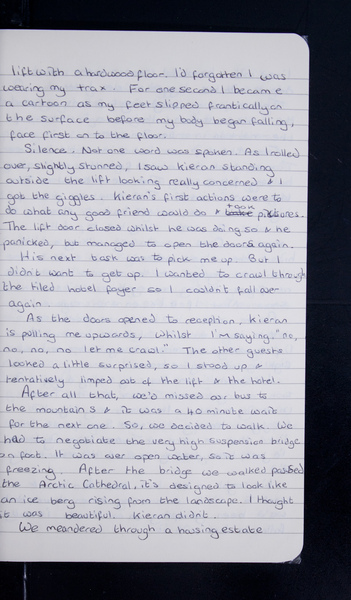 lift with a hardwood floor. I'd forgotten I was
wearing my trax. For one second I became
a cartoon as my feet slipped frantically on
the surface before my body began falling,
face first on to the floor.
Silence. Not one word was spoken. As I rolled
over, slightly stunned, I saw Kieran standing
outside the lift looking really concerned & I
got the giggles. Kieran's first actions were to
do what any good friend would do & took pictures.
The lift door closed whilst he was doing so & he
panicked, but managed to open the doors again.
His next task was to pick me up. But I
didn't want to get up. I wanted to crawl through
the tiled hotel foyer so I couldn't fall over
again.
As the doors opened to reception, Kieran
is pulling me upwards, whilst I'm saying, "no,
no, no, no let me crawl." The other guests
looked a little surprised, so I stood up &
tentatively limped out of the lift & the hotel.
After all that, we'd missed our bus to
the mountains & it was a 40 minute wait
for the next one. So, we decided to walk. We
had to negotiate the very high suspension bridge
on foot. It was over open water, so it was
freezing. After the bridge we walked passed
the Arctic Cathedral, it's designed to look like
an ice berg rising from the landscape. I thought
it was beautiful. Kieran didnt.
We meandered through a housing estate